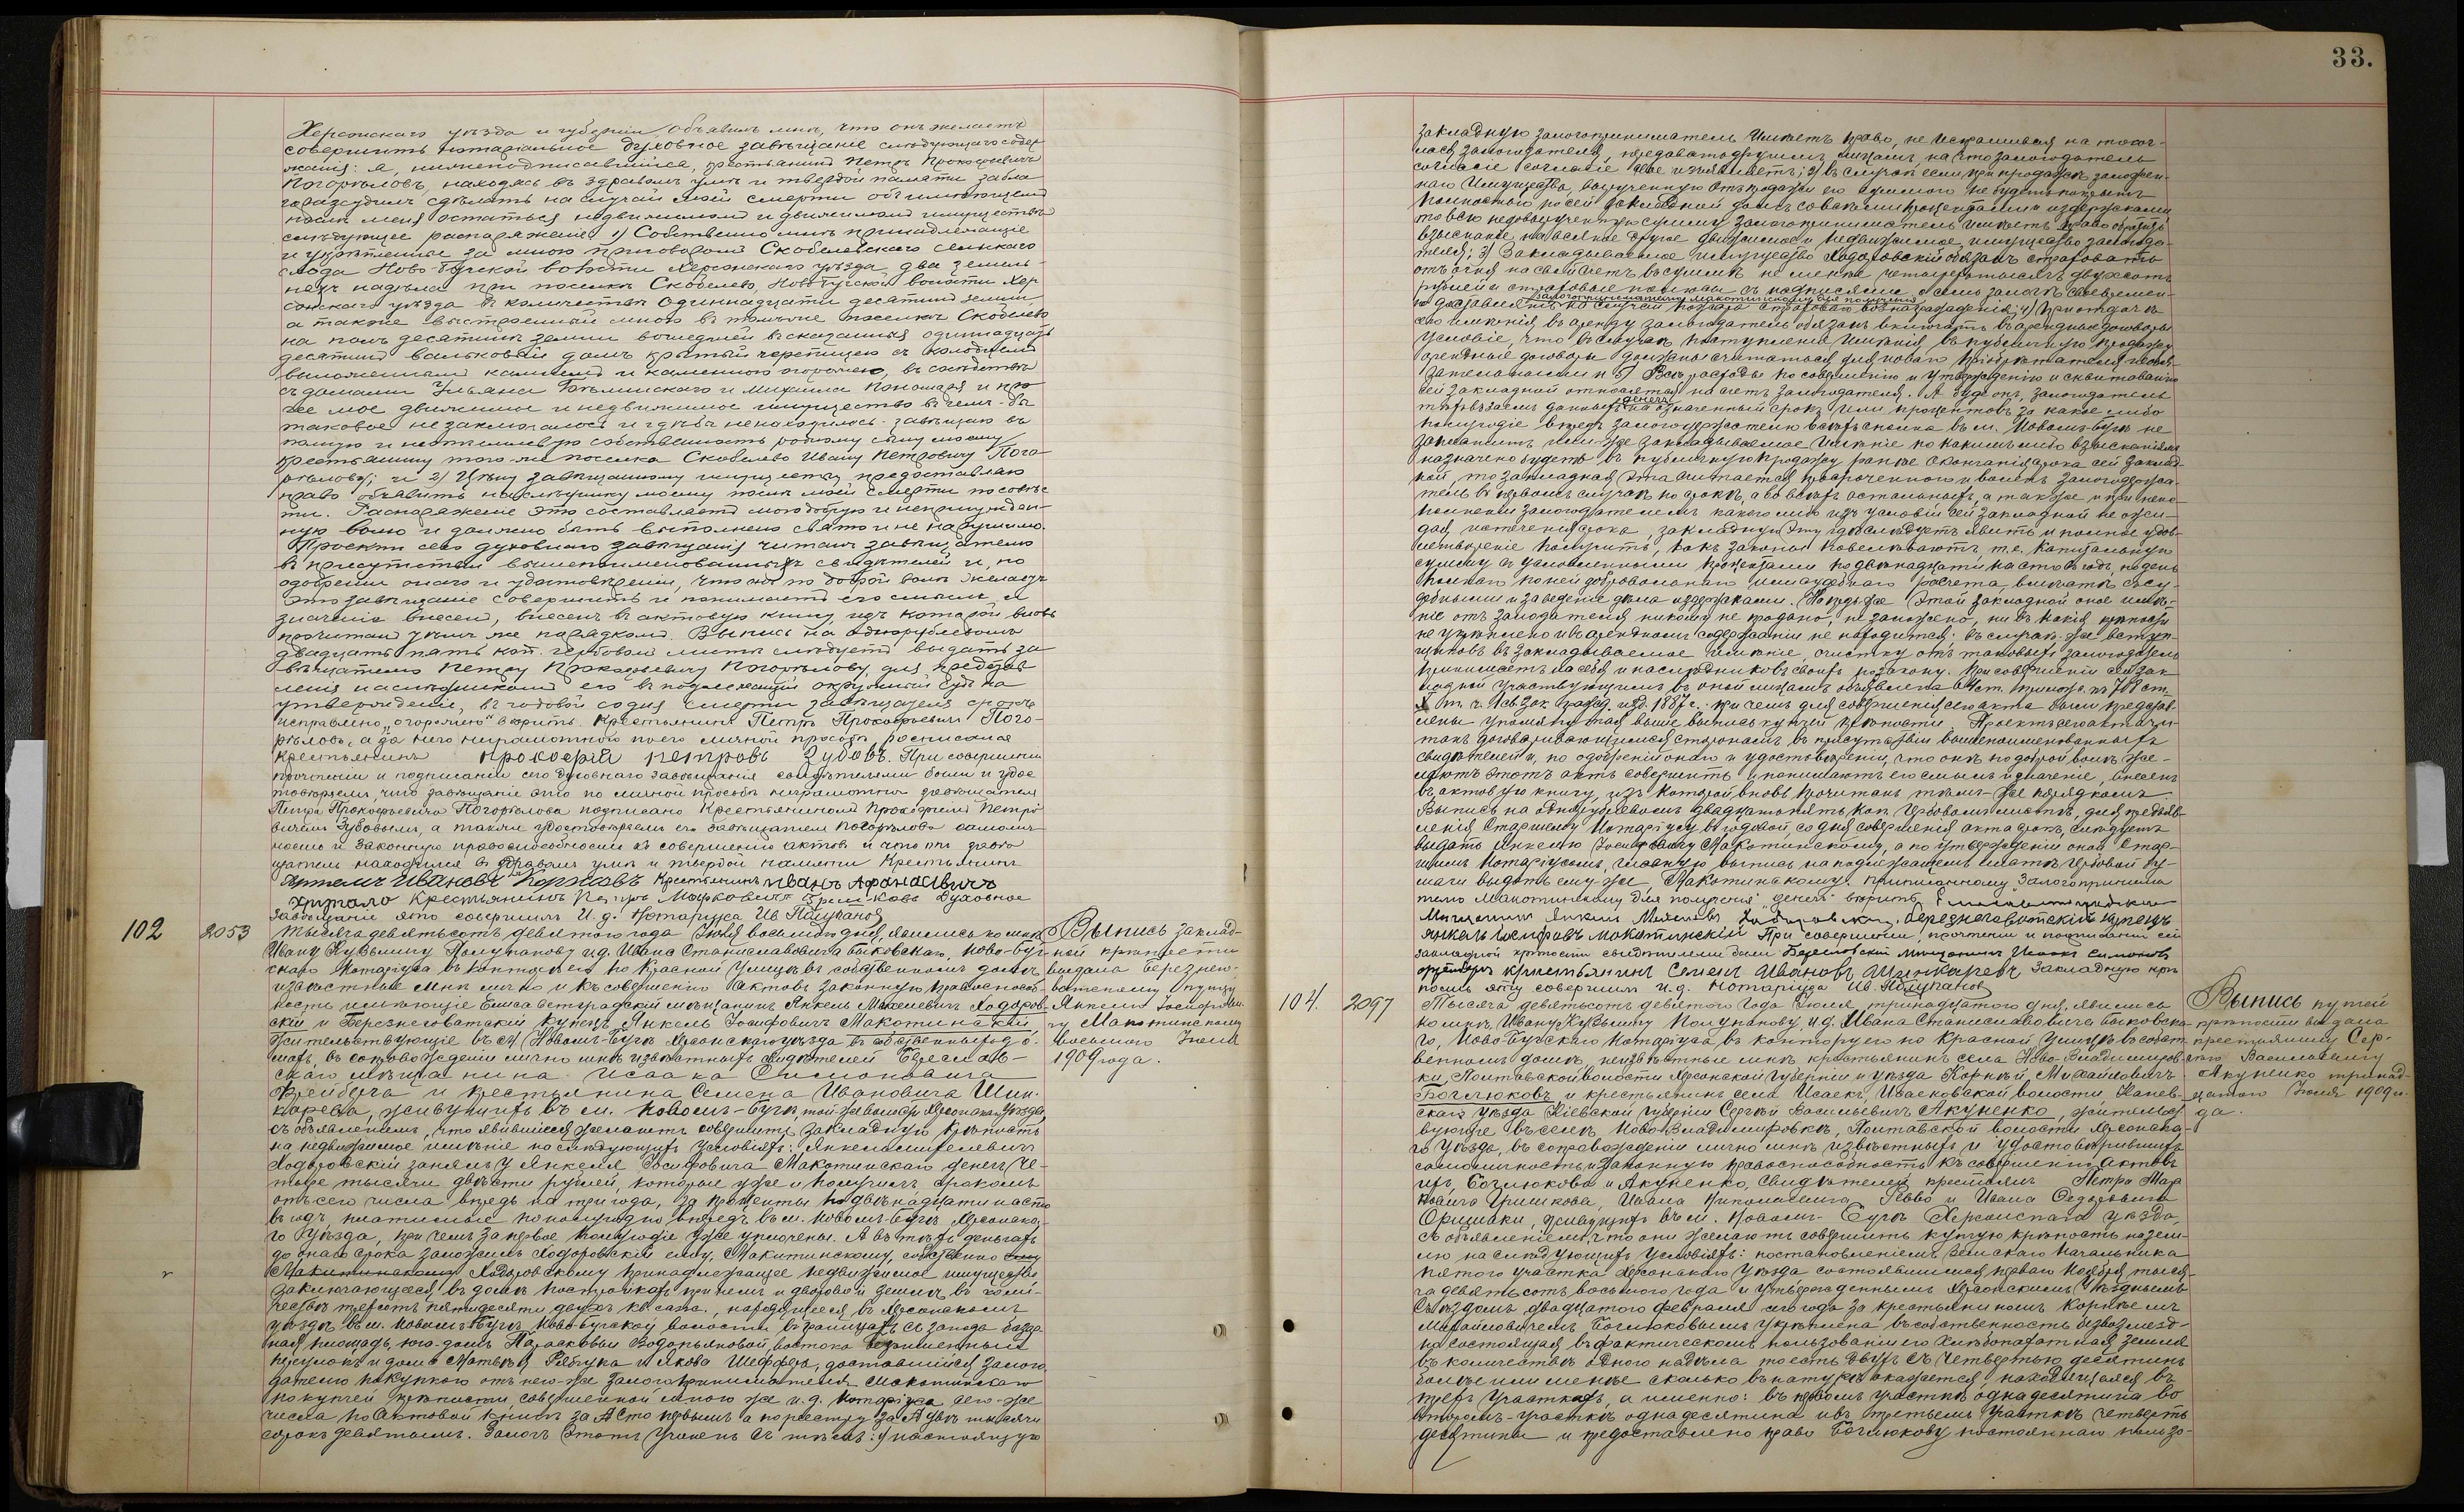 33.
Херсонскаго уѣзда и губерніи, объявилъ мнѣ, что онъ желаетъ
совершить нотаріальное духовное завѣщаніе слѣдующаго содер-
жанія: я, нижеподписавшійся, крестьянинъ Петръ Прокофьевичъ
Погорѣловъ, находясь въ здравомъ умѣ и твердой памяти забла-
горазсудилъ сдѣлать на случай моей смерти объ имѣющемъ
послѣ меня остаться недвижимомъ и движимомъ имуществѣ
слѣдующее распоряженіе: 1) Собственно мнѣ принадлежащіе
и укрѣпленные за мною приговоромъ Скобелевскаго сельскаго
схода Ново-Бугской волости Херсонскаго уѣзда, два земель-
ныхъ надѣла при поселкѣ Скобелево, Новобугской волости Хер-
сонскаго уѣзда въ количествѣ одиннадцати десятинъ земли
а также выстроенный мною въ томъ же поселкѣ Скобелево
на полъ десятинѣ земли вошедшей въ сказанныя одиннадцать
десятинъ вальковый домъ крытый черепицею съ колодцемъ
выложеннымъ камнемъ и каменною огорожею, въ сосѣдствѣ
съ домами Ульяна и Михаила Пономаря и про-
чее мое движимое и недвижимое имущество въ чемъ-бы
таковое не заключалось и гдѣ-бы не находилось завѣщаю въ
полную и неотъемлемую собственность родному сыну моему
крестьянину того-же поселка Скобелево Ивану Петровичу Пого-
рѣлову; и 2) Цѣну завѣщанному имуществу предоставляю
право объявить наслѣднику моему послѣ моей смерти по совѣс-
ти. Распоряженіе это составляетъ мою добрую и непринужден-
ную волю и должно быть выполнено свято и не нарушимо.
Проектъ сего духовнаго завѣщанія читанъ завѣщателю
въ присутствіи вышепоименованныхъ свидѣтелей и, по
одобреніи онаго и удостовѣреніи, что онъ по доброй волѣ желаетъ
это завѣщаніе совершить и понимаетъ его смыслъ и
значеніе внесенъ въ актовую книгу, изъ которой вновь
прочитанъ тѣмъ же порядкомъ. Выпись на однорублевомъ
двадцать пять коп. гербовомъ листѣ слѣдуетъ выдать за-
вѣщателю Петру Прокофьевичу Погорѣлову, для представ-
ленія наслѣдникомъ его въ подлежащій окружный судъ на
утвержденіе, въ годовой со дня смерти завѣщателя срокъ
исправлено „огорожею" вѣрить. Крестьянинъ Петръ Прокофьевичъ Пого-
рѣловъ, а за него неграмотнаго по его личной просьбѣ росписался
крестьянинъ Прокофій Петровъ Зубовъ. При совершеніи
прочтеніи и подписаніи сего духовнаго завѣщанія свидѣтелями были и удос-
товѣряемъ, что завѣщаніе это по личной просьбѣ неграмотнаго завѣщателя
Петра Прокофьевича Погорѣлова подписано крестьяниномъ Прокофіемъ Петро-
вичемъ Зубовымъ, а также удостовѣряемъ его завѣщателя Погорѣлова самолич-
ность и законную правоспособность къ совершенію актовъ и что онъ завѣ-
щатель находился въ здравомъ умѣ и твердой памяти Крестьянинъ
Артемъ Ивановъ Коржовъ Крестьянинъ Иванъ Афанасiвичъ
Крестьянинъ Петръ Марковичъ Духовное
завѣщаніе это совершилъ И. д. Нотаріуса Ив Полупановъ
102 2053 Тысяча девятьсотъ девятаго года Іюля восьмого дня, явились ко мнѣ
Ивану Кузьмичу Полупанову и.д. Ивана Станиславовича Быковскаго, Ново-Буг-
скаго Нотаріуса въ контору его по Красной Улицѣ въ собственномъ домѣ
извѣстные мнѣ лично и къ совершенію актовъ законную правоспособ-
ность имѣющіе Елисаветградскій мѣщанинъ Янкель Михелевичъ Ходоров-
скій и Березнеговатскій купецъ Янкель Іосифовичъ Макотинскій,
жительствующіе въ м. Новомъ-Бугѣ Херсонскаго уѣзда въ собственныхъ до-
махъ, въ сопровожденіи лично мнѣ извѣстныхъ свидѣтелей Береслав-
скаго мѣщанина Исаака Симоновича
Фрейберга и крестьянина Семена Ивановича Шин-
карева, живущихъ въ м. Новомъ-Бугѣ, той-же волости Херсонскаго уѣзда,
съ объявленіемъ, что явившіеся желаютъ совершить закладную крѣпость
на недвижимое имѣніе на слѣдующихъ условіяхъ: Янкель Михелевичъ
Ходоровскій занялъ у Янкеля Іосифовича Макотинскаго денегъ че-
тыре тысячи двѣсти рублей, которые уже и получилъ, срокомъ
отъ сего числа впредь на три года, за проценты по двѣнадцати на сто
въ годъ, платимые по полугодно впередъ въ м. Новомъ-Бугѣ Херсонска-
го уѣзда, при чемъ за первое полугодіе уже уплочены. А въ тѣхъ деньгахъ
до онаго срока заложилъ Ходоровскій ему, Макотинскому, собственно ему
Макотинскому Ходоровскому принадлежащее недвижимое имущество
заключающееся въ домѣ, постройкахъ при немъ и дворовой землѣ въ коли-
чествѣ трехсотъ пятидесяти двухъ кв. саж., находящееся въ Херсонскомъ
уѣздѣ въ м. Новомъ-Бугѣ Ново-Бугской волости въ границахъ: съ запада базар-
ная площадь, юга домъ Парасковьи Водопьяновой, востока безъименный
переулокъ и домъ Матвѣя Рябчука и Якова Шеффера, доставшійся залого-
дателю покупкою отъ него-же залогопринимателя Макотинскаго
по купчей крѣпости, совершенной мною же и.д. Нотаріуса сего-же
числа по актовой книгѣ за № сто первымъ а по реестру за № двѣ тысячи
сорокъ девятымъ. Залогъ этотъ учиненъ съ тѣмъ: 1) настоящую
Выпись заклад-
ной крѣпости
выдана Березнего-
ватскому купцу
Янкелю Іосифови-
чу Макотинскому
восьмого Іюля
1909 года.
закладную залогоприниматель имѣетъ право, не испрашивая на то сог-
ласія залогодателя, передавать другимъ лицамъ, на что залогодатель
согласіе свое изъявляетъ; 2) въ случаѣ если при продажѣ заложен-
наго имущества, вырученною отъ продажи его суммою не будетъ покрытъ
полностью по сей закладной долгъ со всѣми процентами и издержками
то всю недовырученную сумму залогоприниматель имѣетъ право обратить
взысканіе на всякое другое движимое и недвижимое имущество залогода-
теля; 3) Закладываемое имущество Ходоровскій обязанъ страховать
отъ огня на свой счетъ въ суммѣ не менѣе четырехъ тысячъ двухсотъ
рублей и страховые полисы съ надписями о семъ залогѣ своевремен-
залогопринимателю Макотинскому для полученія
но доставлять на случай пожара страховаго вознагражденія; 4) При отдачѣ
сего имѣнія въ аренду залогодатель обязанъ включать въ арендные договоры
условіе, что въ случаѣ поступленія имѣнія въ публичную продажу
арендные договоры должны считаться для новаго пріобрѣтателя необя-
зательными и 5) Всѣ расходы по совершенію и утвержденію и сквитованію
сей закладной относятся на счетъ залогодателя. А буде онъ, залогодатель
денегъ
тѣхъ взаемъ данныхъ на означенный срокъ или процентовъ за какое либо
полугодіе впередъ залогодержателю въ м. Новомъ-Бугѣ не
заплатитъ или-же закладываемое имѣніе по какимъ либо взысканіямъ
назначено будетъ въ публичную продажу ранѣе окончанія срока сей заклад-
ной, то закладная эта считается просроченною и воленъ залогодержа-
тель въ первомъ случаѣ по срокѣ, а во всѣхъ остальныхъ, а также и при неис-
полненіи залогодателемъ какого либо изъ условій сей закладной не ожи-
дая истеченія срока, закладную эту гдѣ слѣдуетъ явить и полное удов-
летвореніе получить, какъ законы повелѣваютъ, т.е. капитальную
сумму съ условленными процентами по двѣнадцати на сто въ годъ, по день
полнаго по ней добровольнаго или судебнаго расчета вмѣстѣ съ су-
дебными и за веденіе дѣла издержками. Напредь же этой закладной оное имѣ-
ніе отъ залогодателя никому не продано, не заложено, ни въ какія крѣпости
не укрѣплено и въ арендномъ содержаніи не находится; въ случаѣ же вступ-
щиковъ въ закладываемое имѣніе, очистку отъ таковыхъ залогодатель
принимаетъ на себя и наслѣдниковъ своихъ по закону. При совершеніи сей зак-
ладной участвующимъ въ оной лицамъ объявлена 64 ст. прилож. къ 708 ст.
X т. ч. I Св. Зак. гражд. изд. 1887 г. причемъ для совершенія сего акта были представ-
лены упомянутая выше выпись купчей крѣпости. Проектъ сего акта чи-
танъ договаривающимся сторонамъ въ присутствіи вышепоименованныхъ
свидѣтелей и, по одобреніи онаго и удостовѣреніи, что онѣ по доброй волѣ же-
лаютъ этотъ актъ совершить и понимаютъ его смыслъ и значеніе, внесенъ
въ актовую книгу, изъ которой вновь прочитанъ тѣмъ-же порядкомъ.
Выпись на однорублевомъ двадцать пять коп. гербовомъ листѣ, для предъяв-
ленія Старшему Нотаріусу въ годовой, со дня совершенія акта срокъ, слѣдуетъ
выдать Янкелю Іосифовичу Макотинскому, а по утвержденіи оной Стар-
шимъ Нотаріусомъ, главную выпись на подлежащемъ листѣ гербовой бу-
маги выдать ему-же, Макотинскому. Приписанному „Залогопринима-
телю Макотинскому для полученія" „денегъ" вѣрить. Елисаветградскій
Мѣщанинъ Янкель Михелевъ Ходоровскій. Березнеговатскій купецъ
Янкель Іосифовъ Макотинскій При совершеніи, прочтеніи и подписаніи сей
закладной крѣпости свидѣтелями были Бериславскій мѣщанинъ Исаакъ Симоновъ
Фрейбергъ крестьянинъ Семенъ Ивановъ Шинкаревъ Закладную крѣ-
пость эту совершилъ и.д. Нотаріуса Ив. Полупановъ
104. 2097 Тысяча девятьсотъ девятаго года Іюля, тринадцатаго дня, явились
ко мнѣ, Ивану Кузьмичу Полупанову, и.д. Ивана Станиславовича Быковска-
го, Ново-Бугскаго Нотаріуса, въ контору его по Красной улицѣ въ собст-
венномъ домѣ, неизвѣстные мнѣ крестьянинъ села Ново-Владимиров-
ки, Полтавской волости Херсонской губерніи и уѣзда Корнѣй Михайловичъ
Боглюковъ и крестьянинъ села Исаекъ, Исаекской волости, Канев-
скаго уѣзда Кіевской губерніи Сергѣй Васильевичъ Акуненко, жительст-
вующіе въ селѣ Ново-Владимировкѣ, Полтавской волости Херсонска-
го уѣзда, въ сопровожденіи лично мнѣ извѣстныхъ и удостовѣрившихъ
самоличность и законную правоспособность къ совершенію актовъ
ихъ, Боглюкова и Акуненко, свидѣтелей крестьянъ Петра Мар-
ковича Гришкова, Ивана Николаевича Рево и Ивана Федоровича
Орищаки, живущихъ въ м. Новомъ-Бугѣ Херсонскаго уѣзда,
съ объявленіемъ, что они желаютъ совершить купчую крѣпость на зем-
лю на слѣдующихъ условіяхъ: постановленіемъ Земскаго Начальника
пятого участка Херсонскаго уѣзда состоявшимся перваго Ноября тыся-
ча девятьсотъ восьмого года и утвержденнымъ Херсонскимъ Уѣзднымъ
Съѣздомъ двадцатаго февраля сего года за крестьяниномъ Корнѣемъ
Михайловичемъ Боглюковымъ укрѣплена въ собственность безвозмезд-
но состоящая въ фактическомъ пользованіи его хлѣбопахатная земля
въ количествѣ одного надѣла то есть двухъ съ четвертью десятинъ
болѣе или менѣе сколько въ натурѣ окажется, находящаяся въ
трехъ участкахъ, а именно: въ первомъ участкѣ одна десятина во
второмъ-участкѣ одна десятина и въ третьемъ участкѣ четверть
десятины и предоставлено право Боглюкову постояннаго пользо-
Выпись купчей
крѣпости выдана
крестьянину Сер-
гѣю Васильевичу
Акуненко тринад-
цатаго Іюля 1909 го-
да.